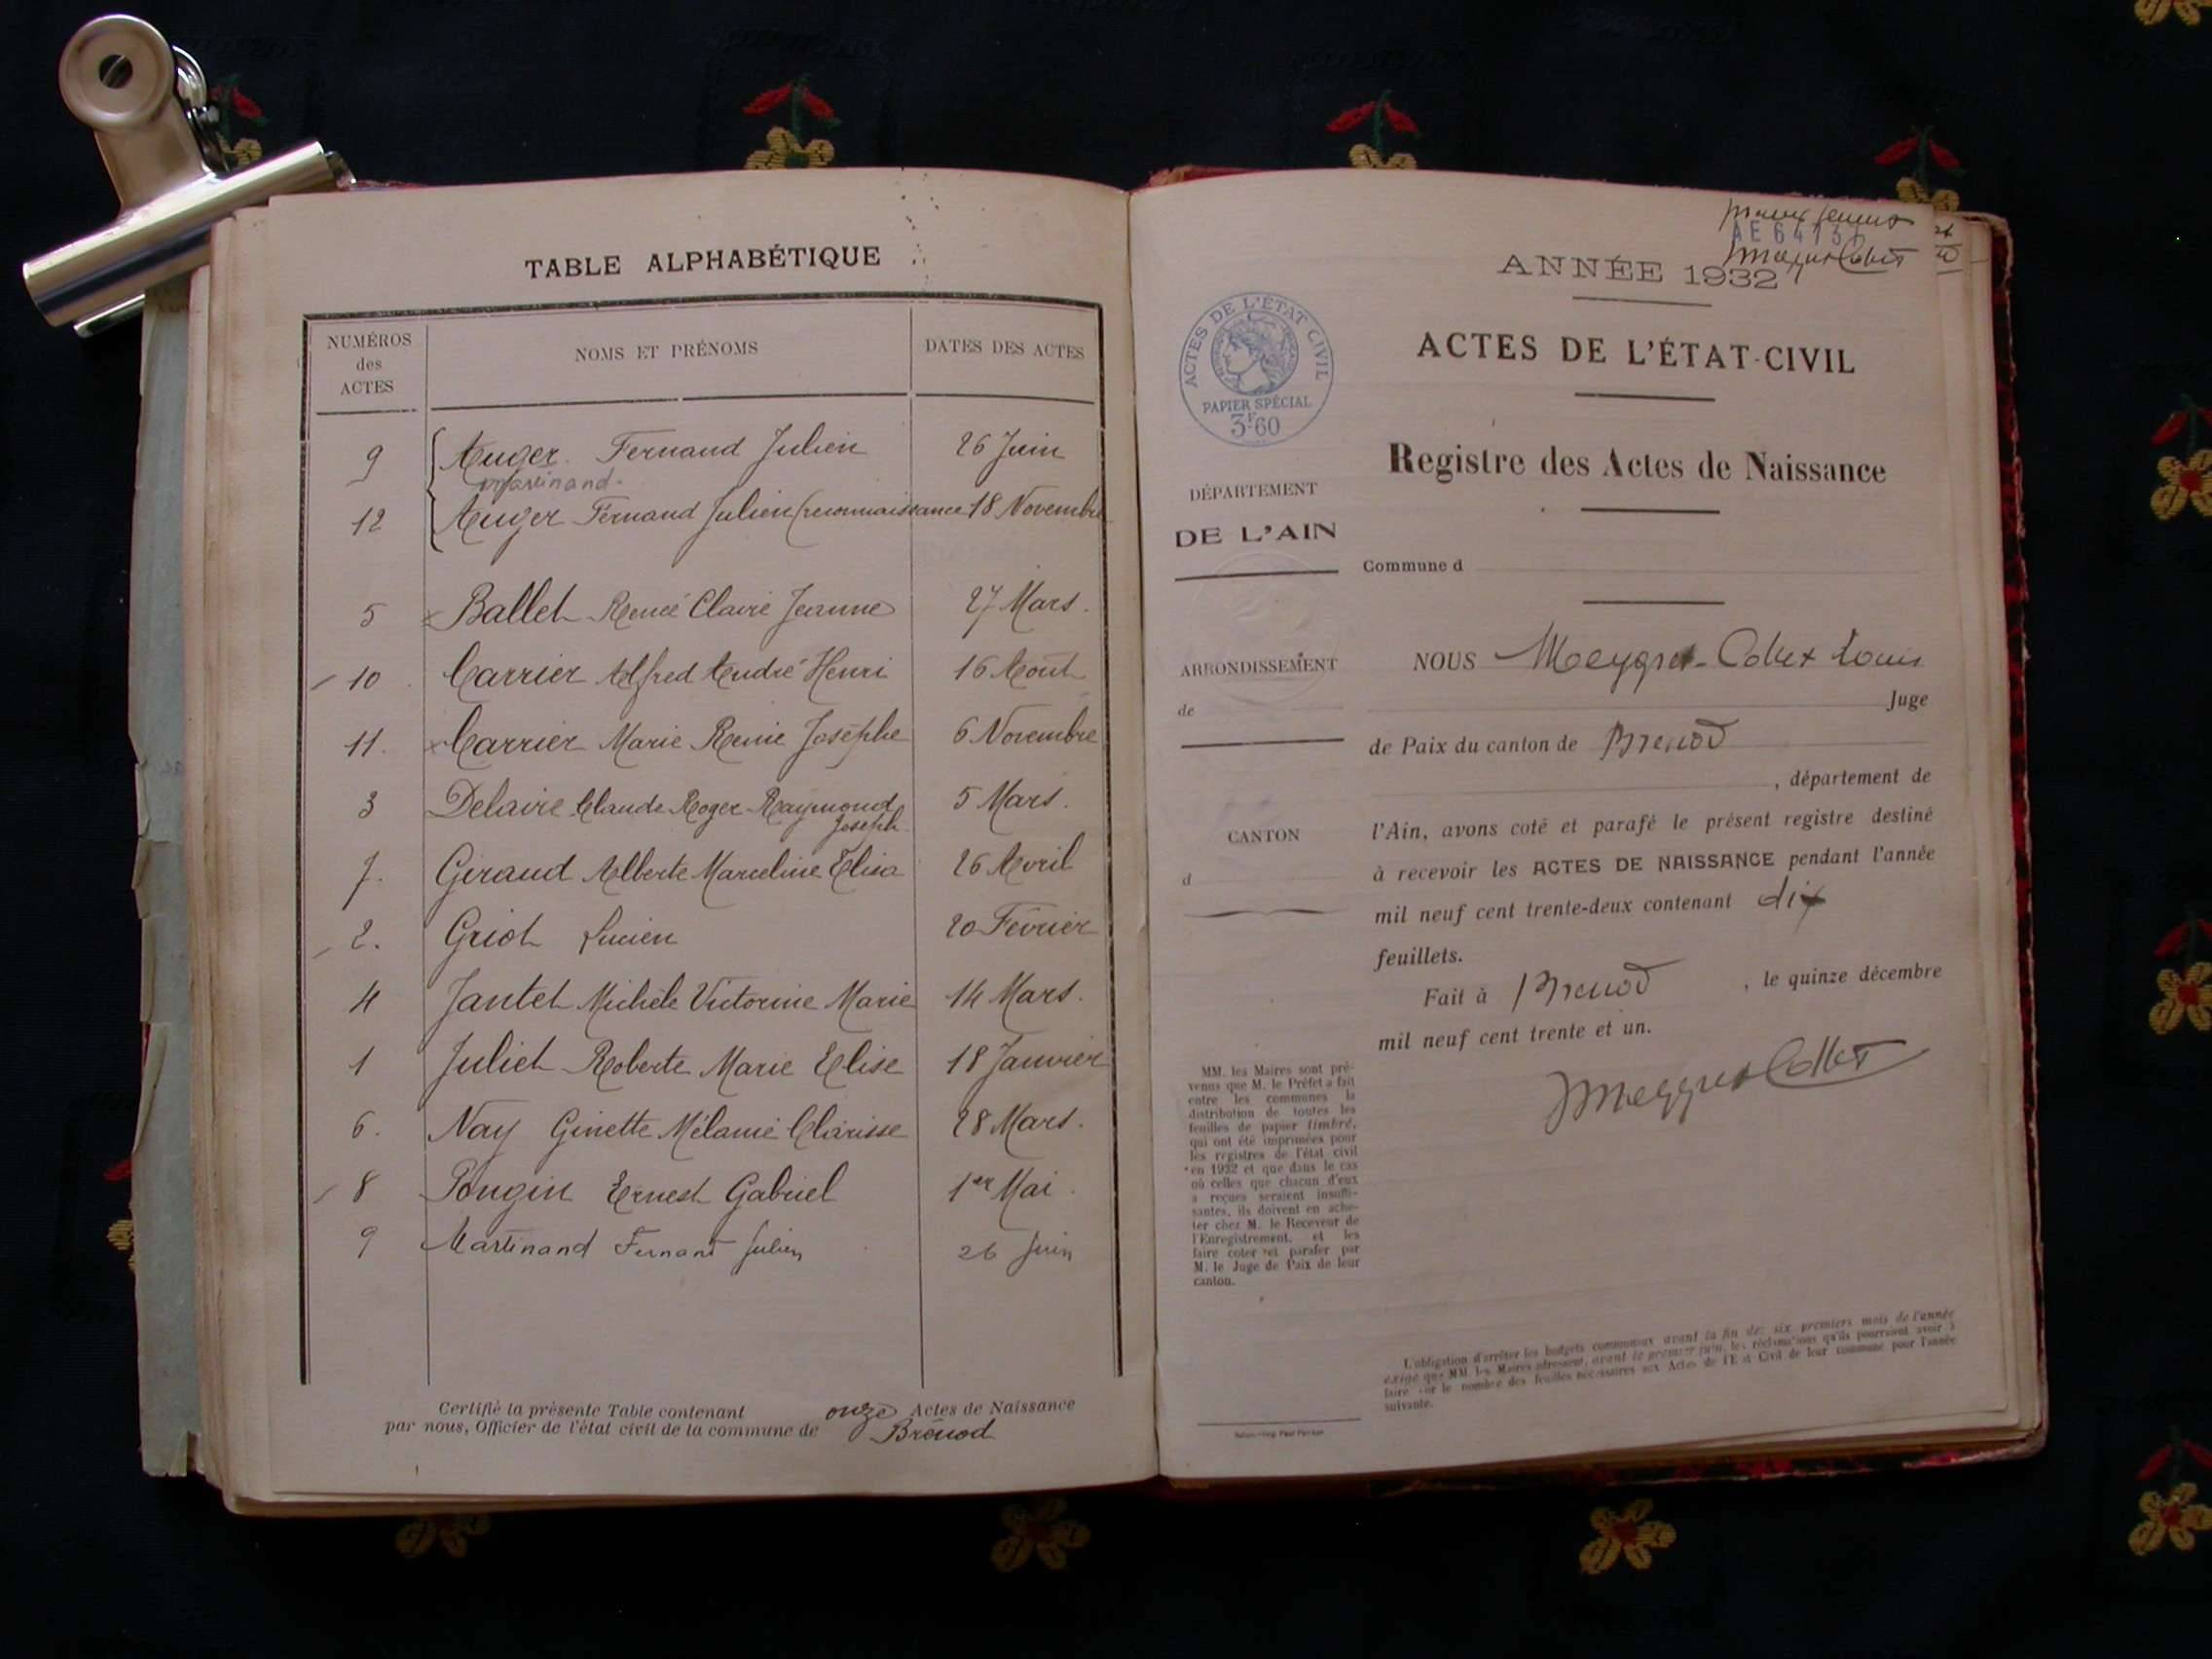 TABLE ALPHABÉTIQUE
NUMÉROS
des
ACTES
NOMS ET PRÉNOMS
DATES DES ACTES
9 Auger Fernand Julien 26 Juin
Martinand
12 Auger Fernand Julien (reconnaissance 18 Novembre
5 Ballet Renée Claire Jeanne 27 Mars.
10 Carrier Alfred André Henri 16 Août
11. Carrier Marie Renée Josèphe 6 Novembre
3 Delaire Claude Roger Raymond 5 Mars.
Joseph
7. Giraud Alberte Marceline Elisa 26 Avril
2. Griot Lucien 20 Février
4 Jantet Michèle Victorine Marie 14 Mars.
1 Juliet Roberte Marie Elise 18 Janvier
6. Nay Ginette Mélanie Clarisse 28 Mars.
8 Pongin Ernest Gabriel 1er Mai.
9 Martinand Fernand Julien 26 Juin
Certifié la présente Table contenant onze Actes de Naissance
par nous, Officier de l'état civil de la commune de Brénod
AE 6413
Meygret Collet
ANNÉE 1932
ACTES DE L'ÉTAT-CIVIL
Registre des Actes de Naissance
ACTES DE L'ÉTAT CIVIL
PAPIER SPÉCIAL
3F60
DÉPARTEMENT
DE L'AIN
Commune d
ARRONDISSEMENT
de
CANTON
d
NOUS Meygret-Collet Louis
Juge
de Paix du canton de Brenod
, département de
l'Ain, avons coté et parafé le présent registre destiné
à recevoir les ACTES DE NAISSANCE pendant l'année
mil neuf cent trente-deux contenant dix
feuillets.
Fait à Brenod , le quinze décembre
mil neuf cent trente et un.
Meygret Collet
MM. les Maires sont pré-
venus que M. le Préfet a fait
entre les communes la
distribution de toutes les
feuilles de papier timbré,
qui ont été imprimées pour
les registres de l'état civil
en 1932 et que dans le cas
où celles que chacun d'eux
a reçues seraient insuffi-
santes, ils doivent en ache-
ter chez M. le Receveur de
l'Enregistrement, et les
faire coter et parafer par
M. le Juge de Paix de leur
canton.
L'obligation d'arrêter les budgets communaux avant la fin des six premiers mois de l'année
exige que MM. les Maires adressent, avant le premier juin, les réclamations qu'ils pourraient avoir à
faire sur le nombre des feuilles nécessaires aux Actes de l'Etat Civil de leur commune pour l'année
suivante.